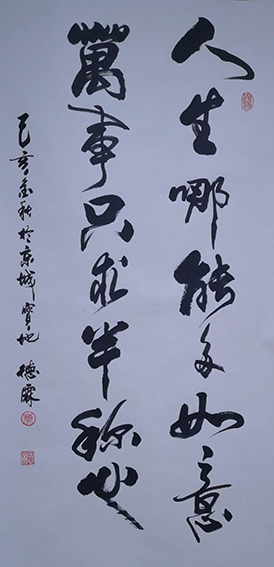 人生哪能多如意
萬事只求半称心
己亥金秋於京城寶地 德霖